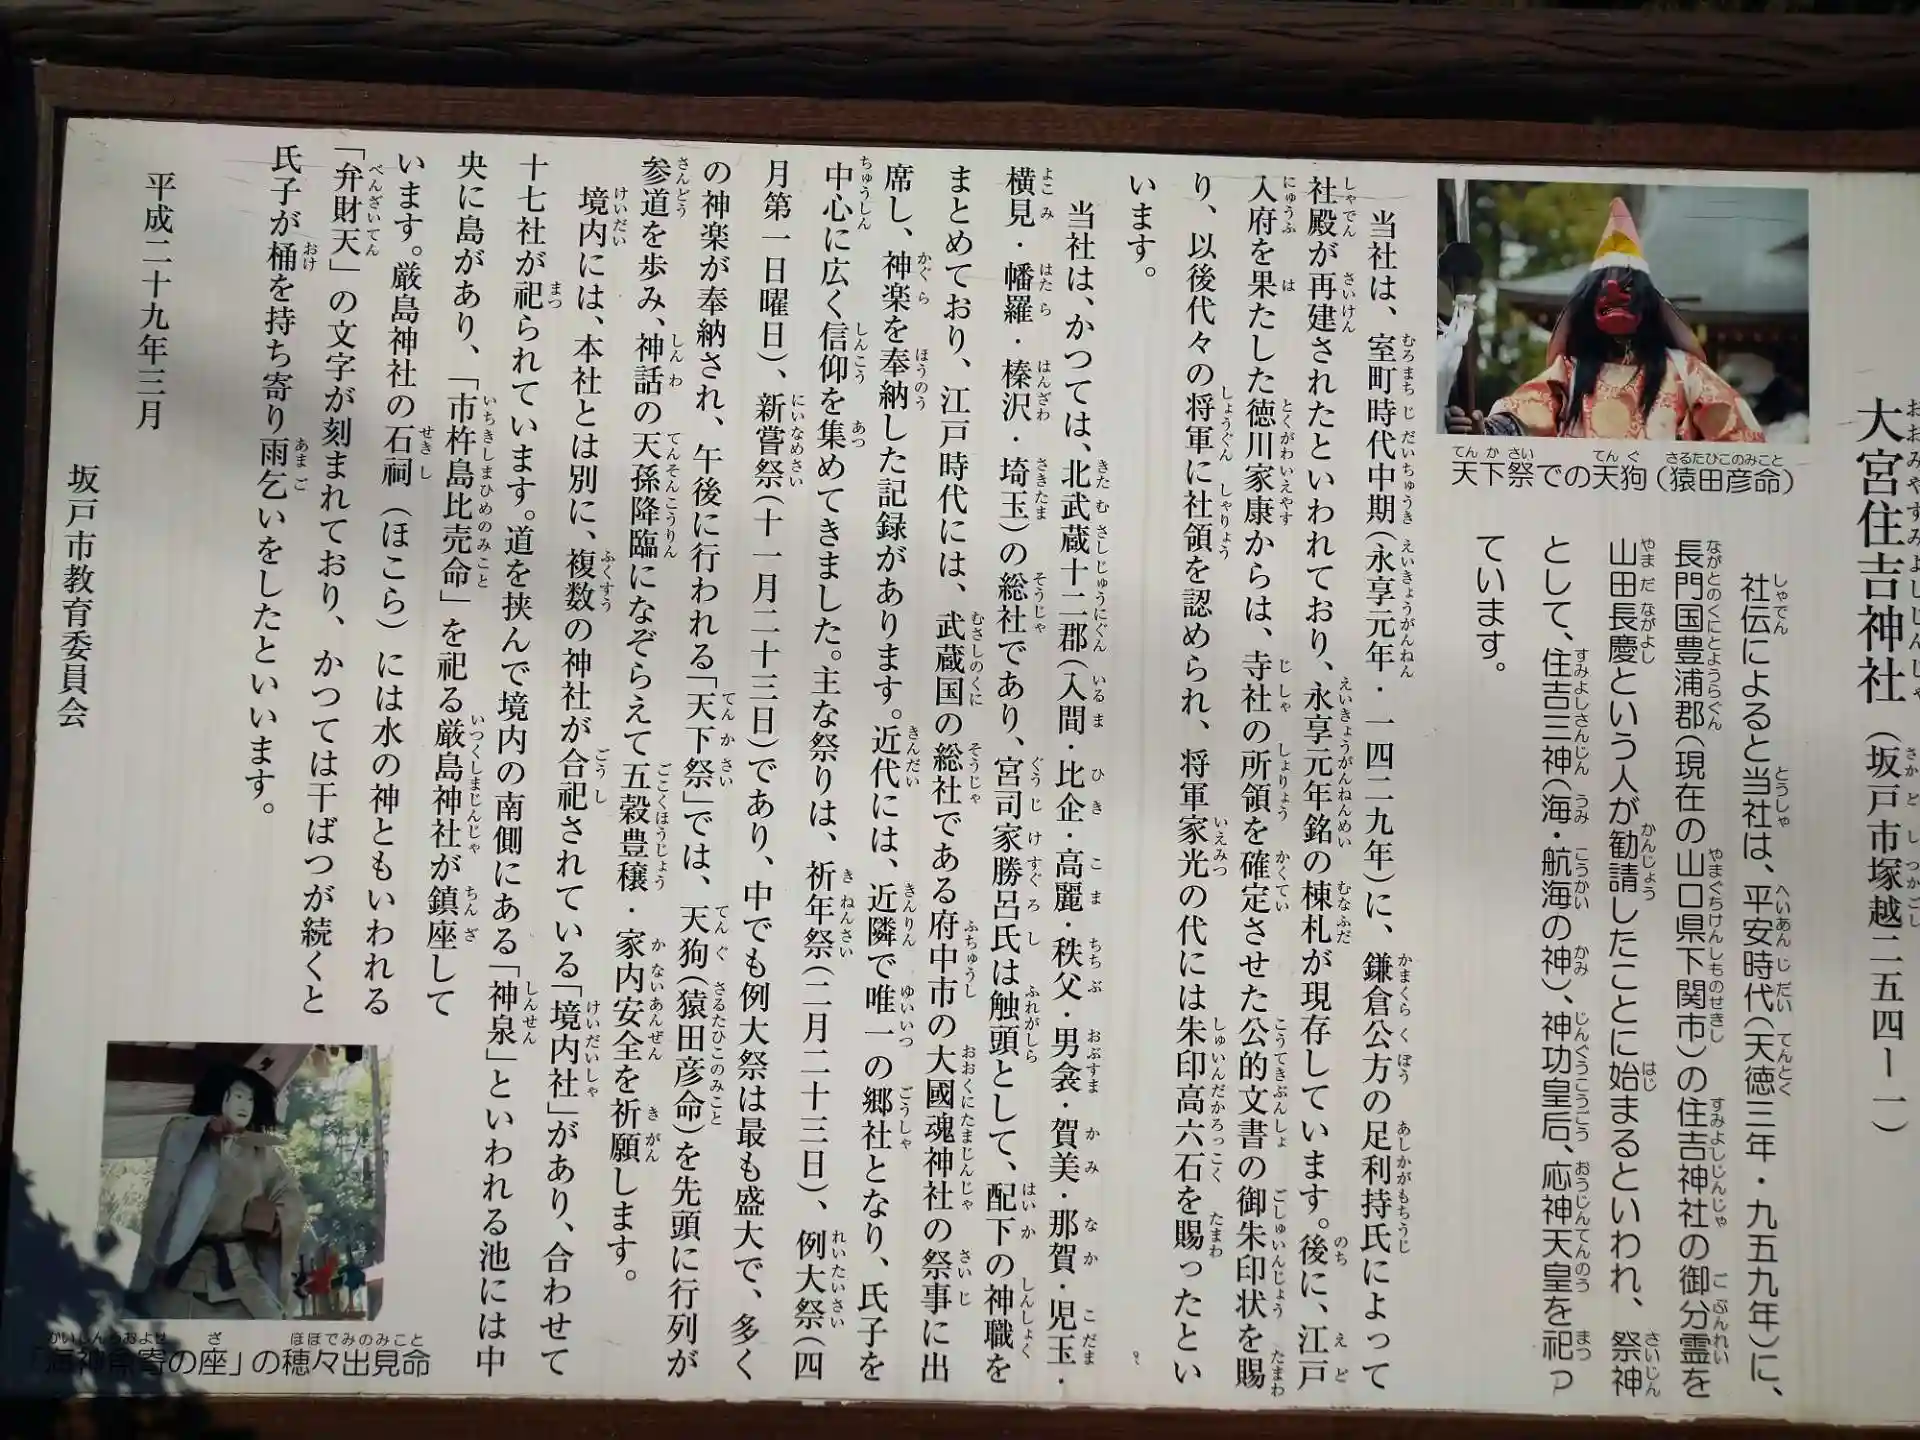 大宮住吉神社（坂戸市塚越二五四ー一）
社伝によると当社は、平安時代（天徳三年・九五九年）に、
長門国豊浦郡（現在の山口県下関市）の住吉神社の御分霊を
山田長慶という人が勧請したことに始まるといわれ、祭神
として、住吉三神（海・航海の神）、神功皇后、応神天皇を祀っ
ています。
天下祭での天狗（猿田彦命）
当社は、室町時代中期（永享元年・一四二九年）に、鎌倉公方の足利持氏によって
社殿が再建されたといわれており、永享元年銘の棟札が現存しています。後に、江戸
入府を果たした徳川家康からは、寺社の所領を確定させた公的文書の御朱印状を賜
り、以後代々の将軍に社領を認められ、将軍家光の代には朱印高六石を賜ったとい
います。
当社は、かつては、北武蔵十二郡（入間・比企・高麗・秩父・男衾・賀美・那賀・児玉・
横見・幡羅・榛沢・埼玉）の総社であり、宮司家勝呂氏は触頭として、配下の神職を
まとめており、江戸時代には、武蔵国の総社である府中市の大國魂神社の祭事に出
席し、神楽を奉納した記録があります。近代には、近隣で唯一の郷社となり、氏子を
中心に広く信仰を集めてきました。主な祭りは、祈年祭（二月二十三日）、例大祭（四
月第一日曜日）、新嘗祭（十一月二十三日）であり、中でも例大祭は最も盛大で、多く
の神楽が奉納され、午後に行われる「天下祭」では、天狗（猿田彦命）を先頭に行列が
参道を歩み、神話の天孫降臨になぞらえて五穀豊穣・家内安全を祈願します。
境内には、本社とは別に、複数の神社が合祀されている「境内社」があり、合わせて
十七社が祀られています。道を挟んで境内の南側にある「神泉」といわれる池には中
央に島があり、「市杵島比売命」を祀る厳島神社が鎮座して
います。厳島神社の石祠（ほこら）には水の神ともいわれる
「弁財天」の文字が刻まれており、かつては干ばつが続くと
氏子が桶を持ち寄り雨乞いをしたといいます。
平成二十九年三月
坂戸市教育委員会
「海神魚寄の座」の穂々出見命